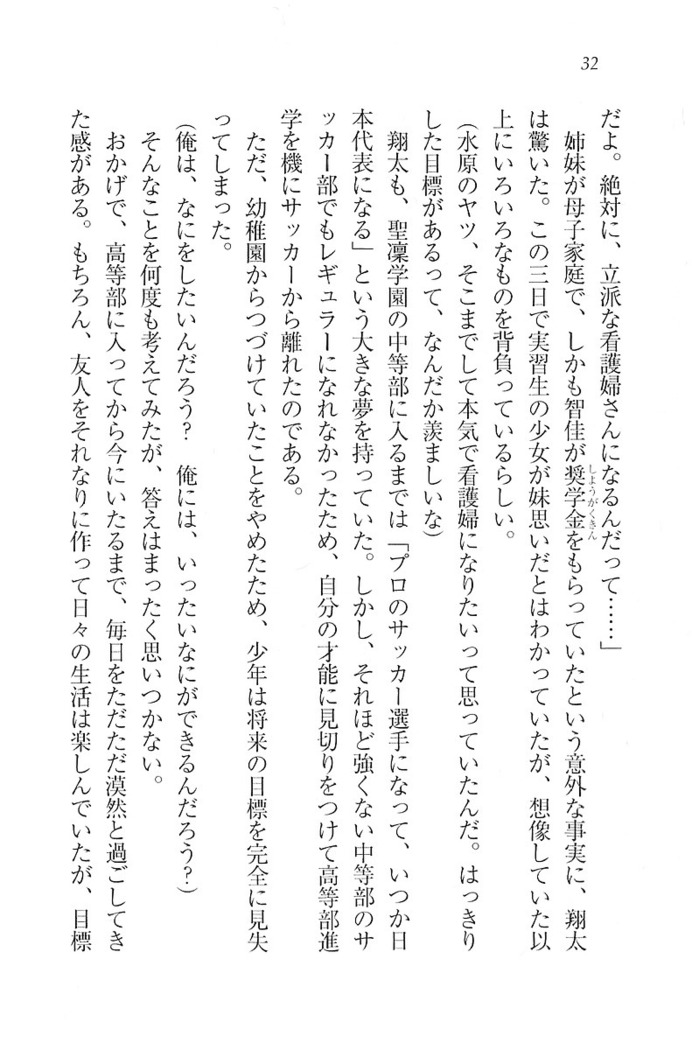 32
だよ。絶対に、立派な看護婦さんになるんだって……」
姉妹が母子家庭で、しかも智佳が奨学金をもらっていたという意外な事実に、翔太
しようがくきん
は驚いた。この三日で実習生の少女が妹思いだとはわかっていたが、想像していた以
上にいろいろなものを背負っているらしい。
(水原のヤツ、そこまでして本気で看護婦になりたいって思っていたんだ。はっきり
した目標があるって、なんだか羨ましいな)
翔太も、聖凜学園の中等部に入るまでは「プロのサッカー選手になって、いつか日
本代表になる」という大きな夢を持っていた。しかし、それほど強くない中等部のサ
ッカー部でもレギュラーになれなかったため、自分の才能に見切りをつけて高等部進
学を機にサッカーから離れたのである。
ただ、幼稚園からつづけていたことをやめたため、少年は将来の目標を完全に見失
ってしまった。
(俺は、なにをしたいんだろう?　俺には、いったいなにができるんだろう?)
そんなことを何度も考えてみたが、答えはまったく思いつかない。
おかげで、高等部に入ってから今にいたるまで、毎日をただただ漠然と過ごしてき
た感がある。もちろん、友人をそれなりに作って日々の生活は楽しんでいたが、目標